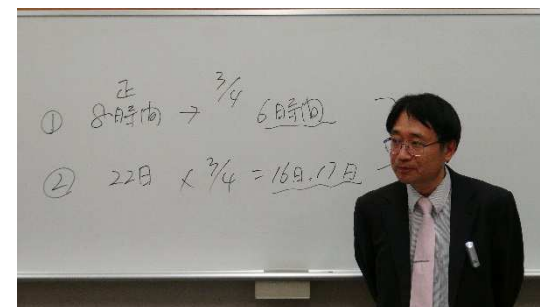 正
① 8時間 → 3/4 6時間
② 22日 × 3/4 = 16日.17日